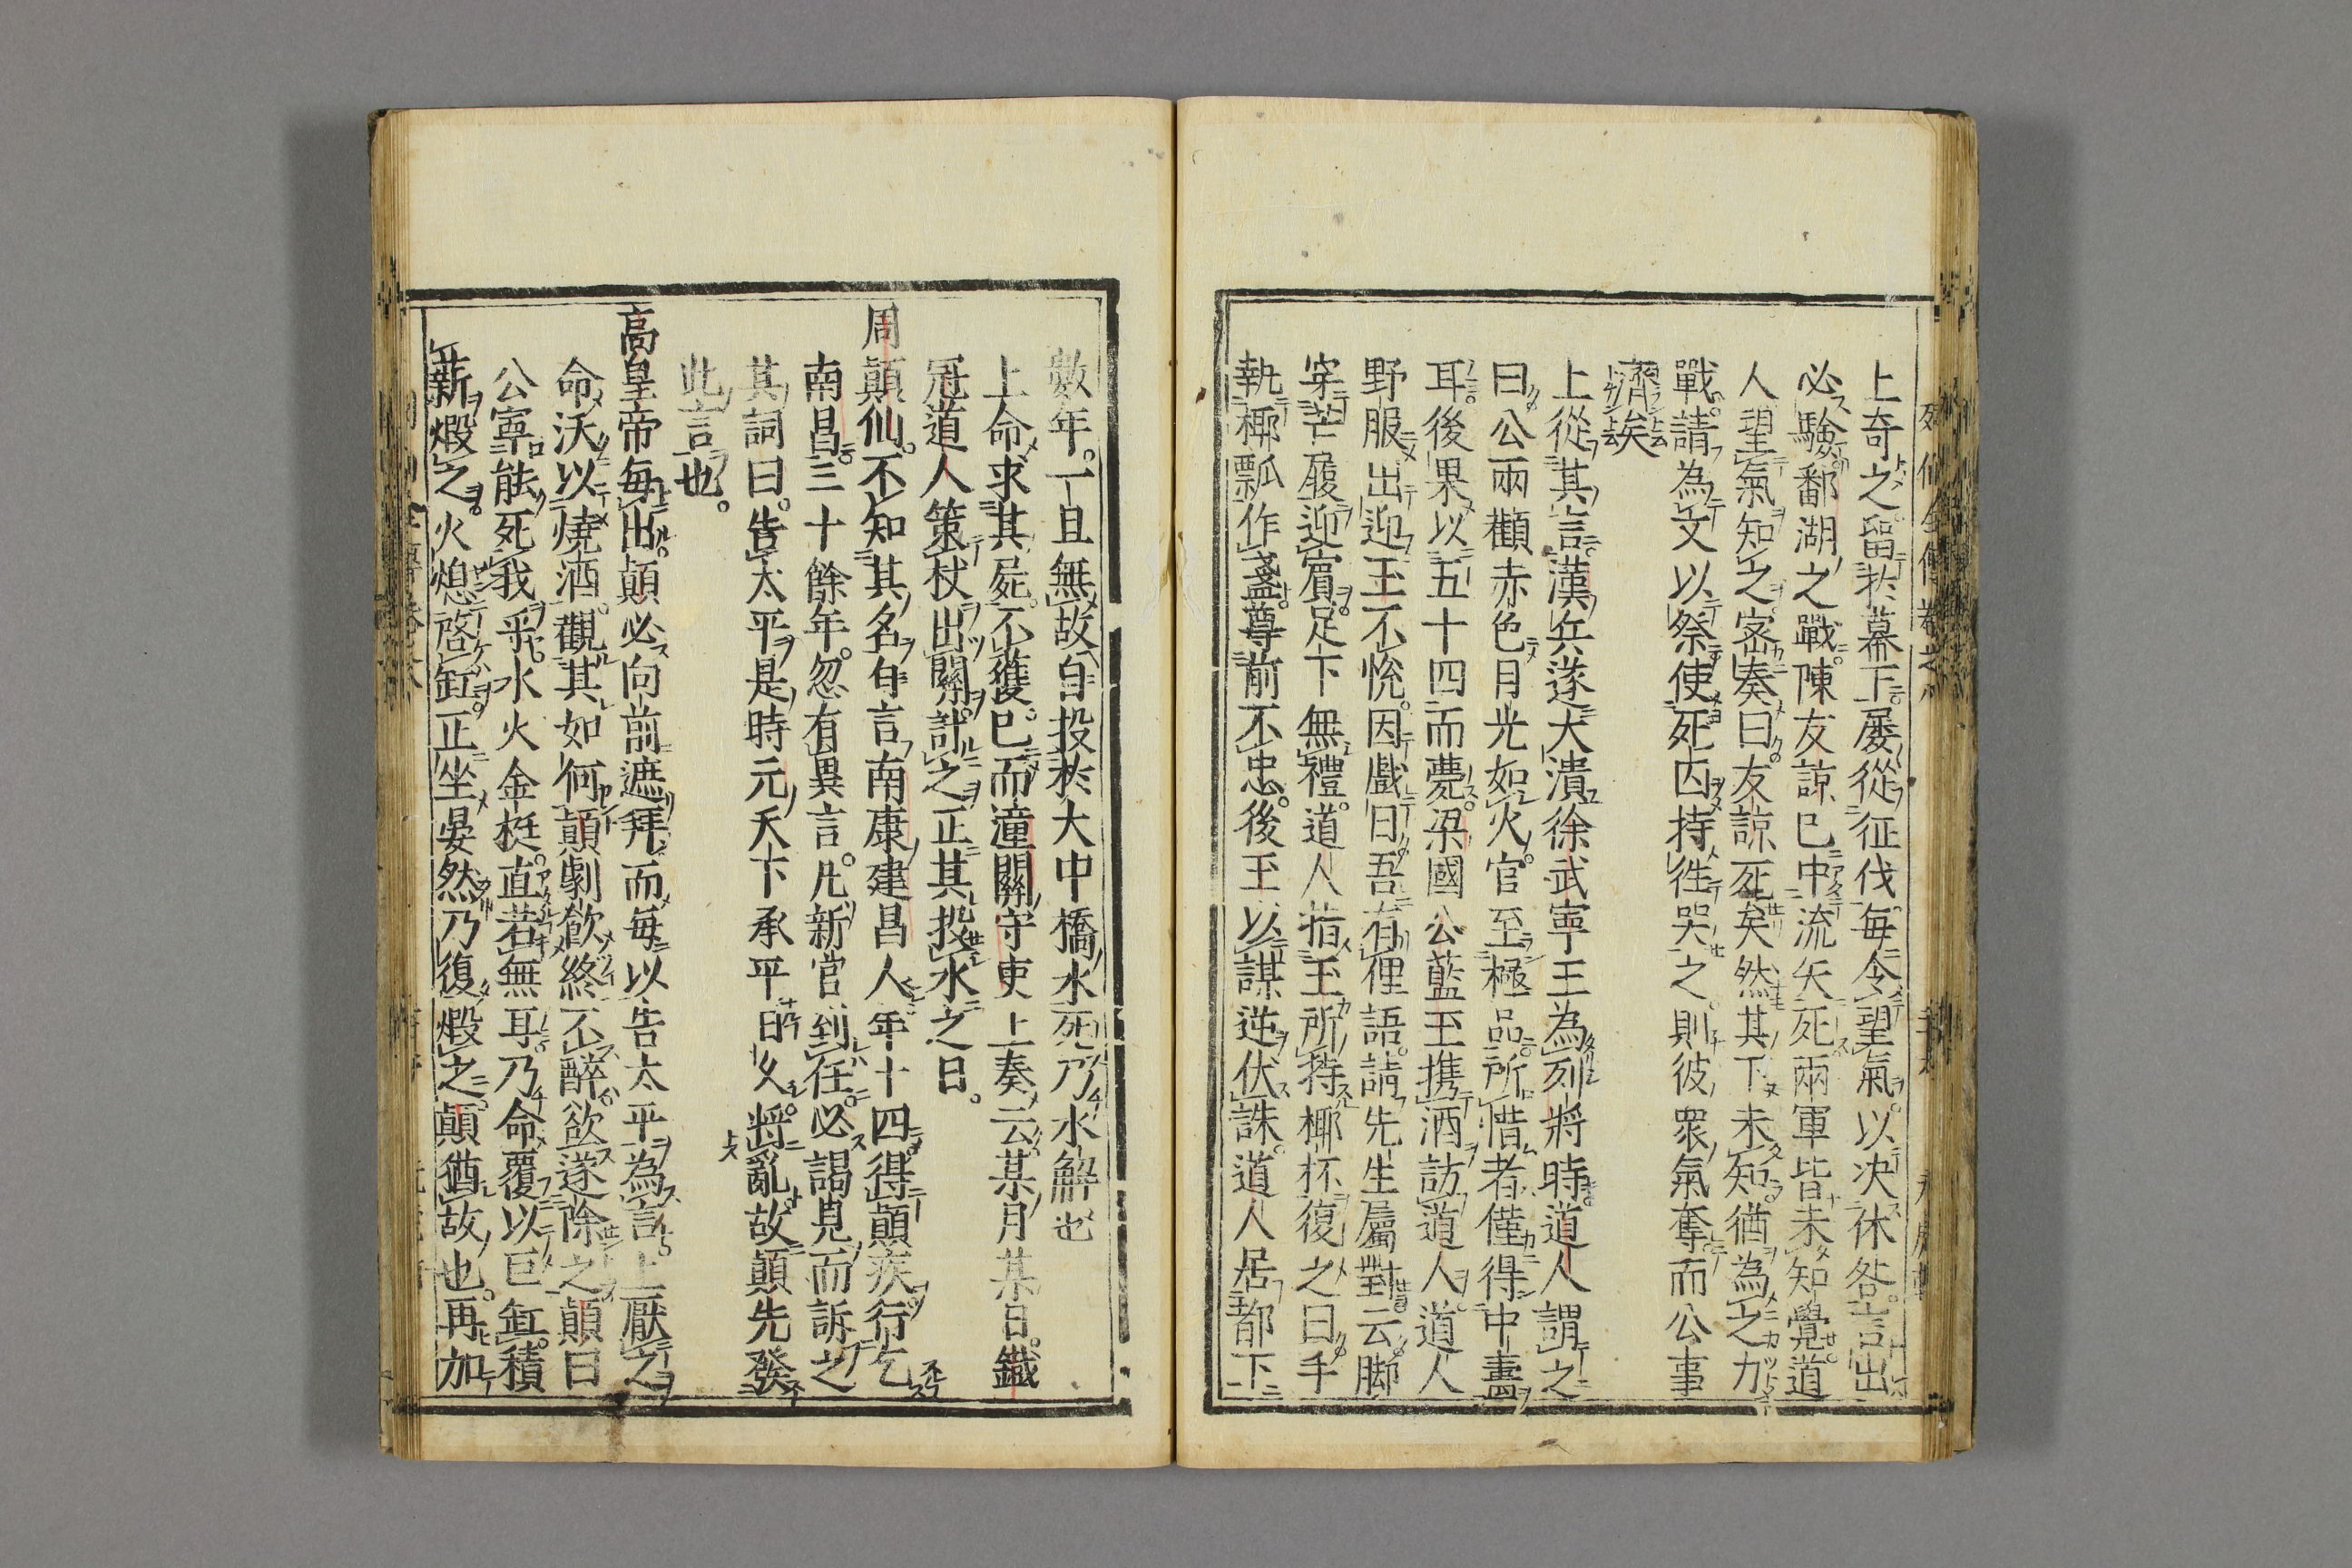 上奇之留於幕下屡從征伐毎令望氣以决休咎言出
必驗鄱湖之戰陳友諒巳中流矢死兩軍皆未知覺道
人望氣知之宻奏曰友諒死矣然其下未知猶為之力
戰請為文以祭使死囚持徃哭之則彼衆氣奪而公事
濟矣
上從其言漢兵遂大潰徐武寧王為列將時道人謂之
曰公兩顴赤色目光如火官至極品所惜者僅得中壽
耳後果以五十四而薨梁國公藍玉携酒訪道人道人
野服出迎玉不恱因戲曰吾有俚語請先生屬對云脚
穿芒履迎賓足下無禮道人指玉所持椰杯復之曰手
執椰瓢作盞尊前不忠後玉以謀逆伏誅道人居都下
數年一旦無故自投於大中橋水死乃水解也
上命求其屍不獲巳而潼關守吏上奏云某月某日鐵
冠道人策杖出關計之正其投水之日
周顛仙不知其名自言南康建昌人年十四得顛疾行乞
南昌三十餘年忽有異言凡新官到任必謁見而訴之
其詞曰告太平是時元天下承平日乆將亂故顛先發
此言也
高皇帝毎出顛必向前遮拜而毎以告太平為言上厭之
命沃以燒酒觀其如何顛劇飲終不醉欲遂除之顛曰
公寧能死我乎水火金梃直若無耳乃命覆以巨缸積
薪煅之火熄啓缸正坐晏然乃復煅之顛猶故也再加